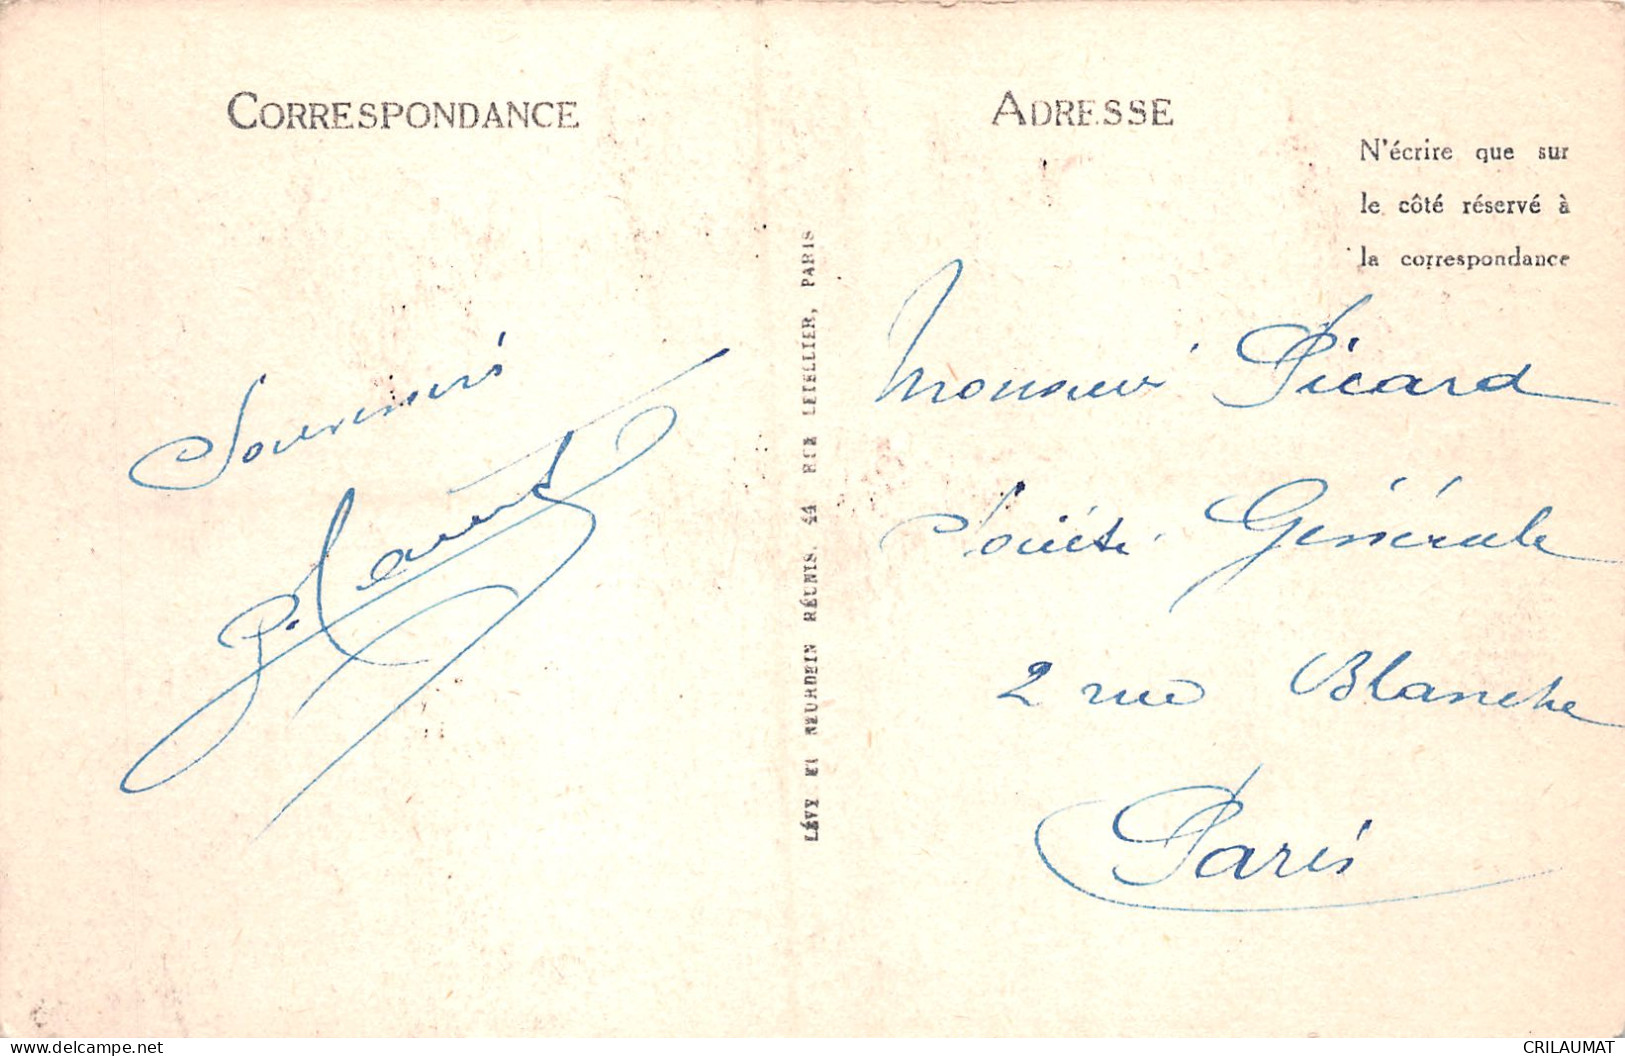 CORRESPONDANCE
ADRESSE
N'écrire que sur
le côté réservé à
la correspondance
Souvenirs
LÉVY ET NEURDEIN RÉUNIS, 44 RUE LETELLIER, PARIS
Monsieur Picard
Société Générale
2 rue Blanche
Paris
delcampe.net
CRILAUMAT